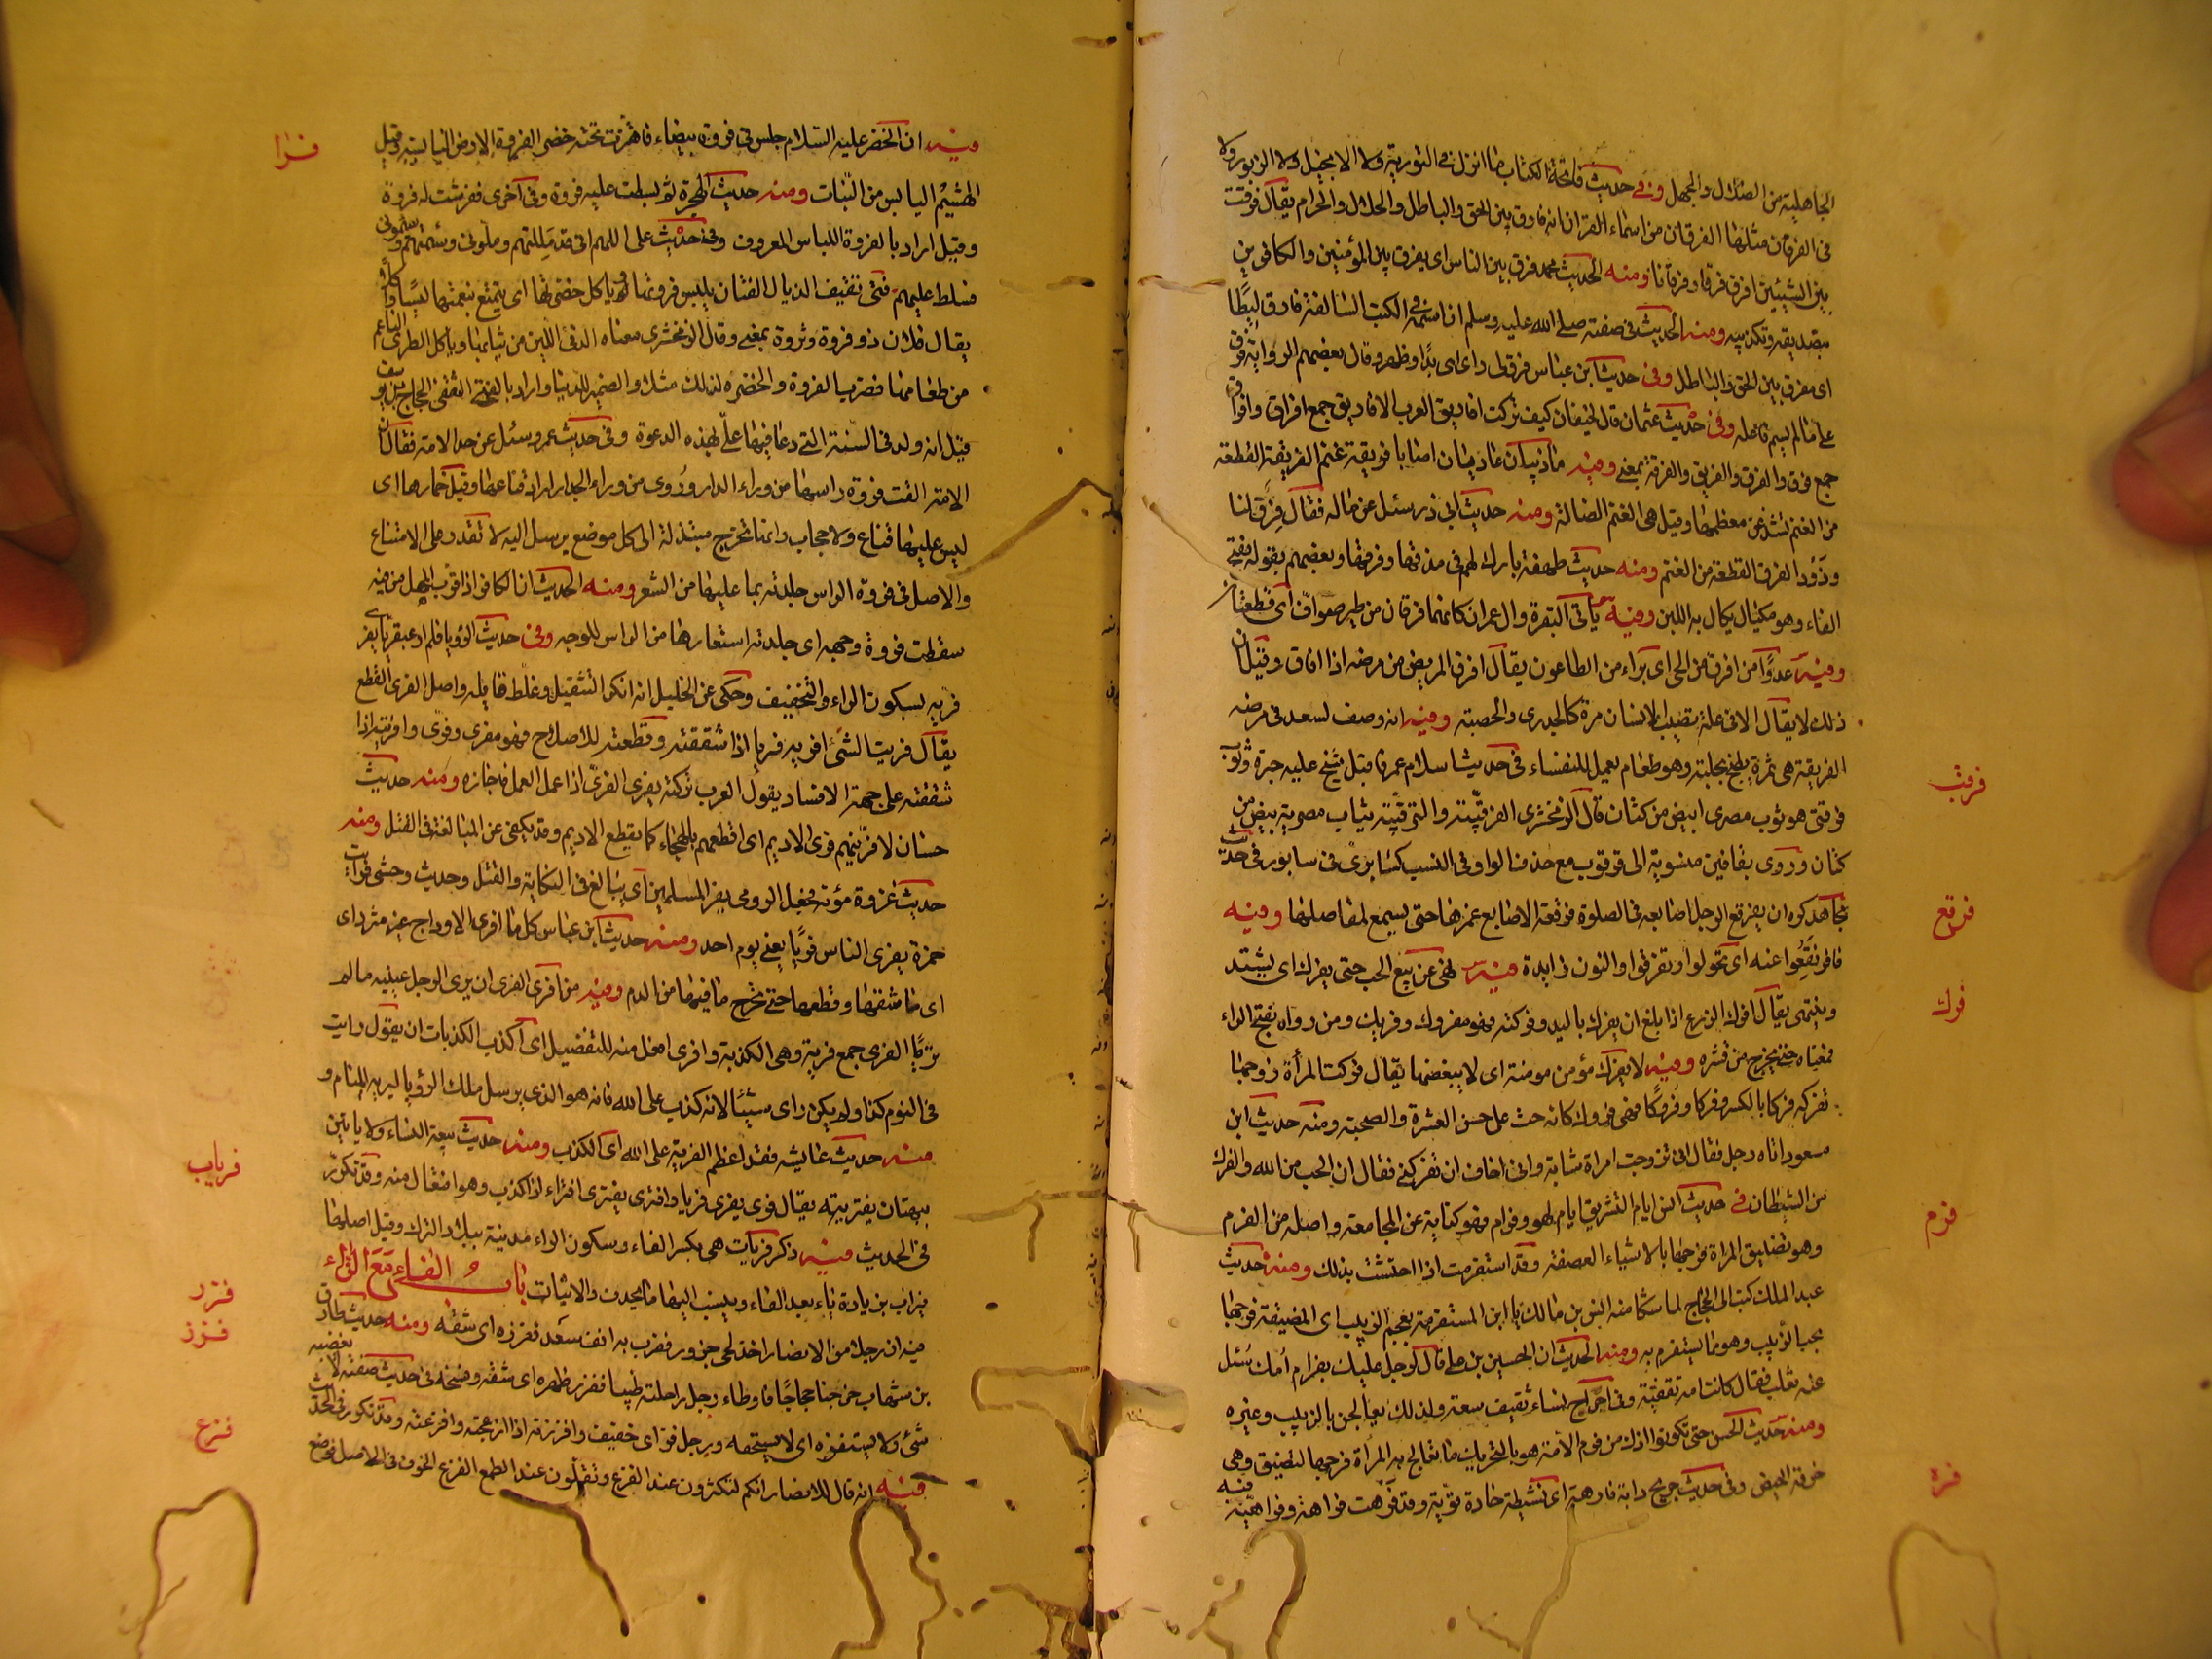 الجاهلية من الضلال والجهل وفي حديث فاتحة الكتاب ما انزل في التورية ولا الانجيل ولا الزبور ولا
في الفرقان مثلها الفرقان من اسماء القران انه فارق بين الحق والباطل والحلال والحرام يقال فرقت
بين الشيئين افرق فرقا وفرقانا ومنه الحديث محمد فرق بين الناس اى يفرق بين المؤمنين والكافرين
بتصديقه وتكذيبه ومنه الحديث في صفته صلى الله عليه وسلم ان اسمه في الكتب السالفة فارق ليطا
اى يفرق بين الحق والباطل وفي حديث ابن عباس فرق لى راى اى بدا وظهر وقال بعضهم الرواية فرق
على ما لم يسم فاعله وفي حديث عثمان قال لخيفان كيف تركت افاريق العرب الافاريق جمع افراق وافراق
جمع فرق والفرق والفريق والفرقة بمعنى ومنه ما ذئبان عاديان اصابا فريقة غنم الفريقة القطعة
من الغنم تشذ عن معظمها وقيل هى الغنم الضالة ومنه حديث ابى ذر سئل عن ماله فقال فرق لنا
وذود الفرق القطعة من الغنم ومنه حديث طهفة بارك لهم في مذقها وفرقها وبعضهم يقوله بفتح
الفاء وهو مكيال يكال به اللبن وفيه ياتى البقرة وال عمران كانهما فرقان من طير صواف اى قطعتان
وفيه عدوا من افرق من الحى اى براء من الطاعون يقال افرق المريض من مرضه اذا افاق وقيل ان
ذلك لا يقال الا في علة تصيب الانسان مرة كالجدرى والحصبة وفيه انه وصف لسعد في مرضه
الفريقة هى ثمرة يطبخ بحلبة وهو طعام يعمل للنفساء في حديث اسلام عمر فاقبل شيخ عليه حبرة وثوب
فرقبى هو ثوب مصرى ابيض من كتان قال الزمخشرى الفرقبية والثرقبية ثياب مصرية بيض من
كتان وروى بقافين منسوبة الى قرقوب مع حذف الواو في النسب كسابرى في سابور في حديث
مجاهد كره ان يفرقع الرجل اصابعه في الصلوة فرقعة الاصابع غمزها حتى يسمع لمفاصلها وفيه
فافرنقعوا عنه اى تحولوا وتفرقوا والنون زايدة فيه نهى عن بيع الحب حتى يفرك اى يشتد
وينتهى يقال افرك الزرع اذا بلغ ان يفرك باليد وفركته فهو مفروك وفريك ومن رواه بفتح الراء
فمعناه حتى يخرج من قشره وفيه لا يفرك مؤمن مومنة اى لا يبغضها يقال فركت المرأة زوجها
تفركه فركا بالكسر وفركا وفروكا فهى فروك كانه حث على حسن العشرة والصحبة ومنه حديث ابن
مسعود اتاه رجل فقال انى تزوجت امراة شابة وانى اخاف ان تفركنى فقال ان الحب من الله والفرك
من الشيطان في حديث انس ايام التشريق ايام لهو وفرام فهو كناية عن المجامعة واصله من الفرم
وهو تضييق المراة فرجها بالاشياء العفصة وقد استفرمت اذا احتشت بذلك ومنه حديث
عبد الملك كتب الى الحجاج لما شكا منه انس بن مالك يا ابن المستفرمة بعجم الزبيب اى المضيقة فرجها
بحب الزبيب وهو مما يستفرم به ومنه الحديث ان الحسين بن على قال لرجل عليك بفرام امك سئل
عنه ثعلب فقال كانت امه ثقفية وفي احراح نساء ثقيف سعة ولذلك يعالجن بالزبيب وغيره
ومنه حديث الحسن حتى تكونوا اذل من فرم الامة هو بالتحريك ما تعالج به المراة فرجها لتضيق وهى
خرقة الحيض وفي حديث جريج دابة فارهة اى نشيطة حادة قوية وقد فرهت فراهة وفراهية
فيه
فرقب
فرقع
فرك
فرم
فره
فيه ان الخضر عليه السلام جلس على فروة بيضاء فاهتزت تحته خضرا الفروة الارض اليابسة وقيل
الهشيم اليابس من النبات ومنه حديث الهجرة ثم بسطت عليه فروة وفي اخرى ففرشت له فروة
وقيل اراد بالفروة اللباس المعروف وفي حديث على اللهم انى قد مللتهم وملونى وسئمتهم وسئمونى
فسلط عليهم فتى ثقيف الذيال المنان يلبس فروتها وياكل خضرتها اى يتمتع بنعمتها لبسا واكلا
يقال فلان ذو فروة وثروة بمعنى وقال الزمخشرى معناه الدفئ اللين من ثيابها وياكل الطرى الناعم
من طعامها فضرب الفروة والخضرة لذلك مثلا والضمير للدنيا واراد بالفتى الثقفى الحجاج بن يوسف
قيل انه ولد في السنة التى دعا فيها على بهذه الدعوة وفي حديث عمر وسئل عن حد الامة فقال ان
الامة القت فروة راسها من وراء الدار وروى من وراء الجدار اراد قناعها وقيل خمارها اى
ليس عليها قناع ولا حجاب وانها تخرج مبتذلة الى كل موضع يرسل اليه لا تقدر على الامتناع
والاصل في فروة الراس جلدته بما عليها من الشعر ومنه الحديث ان الكافر اذا قرب المهل من فيه
سقطت فروة وجهه اى جلدته استعارها من الراس للوجه وفي حديث الرؤيا فلم ار عبقريا يفرى
فريه بسكون الراء والتخفيف وحكى عن الخليل انه انكر التثقيل وغلط قايله واصل الفرى القطع
يقال فريت الشئ افريه فريا اذا شققته وقطعته للاصلاح فهو مفرى وفرى وافريته اذا
شققته على جهة الافساد يقول العرب تركته يفرى الفرى اذا عمل العمل فاجازه ومنه حديث
حسان لافرينهم فرى الاديم اى اقطعهم بالهجاء كما يقطع الاديم وقد يكنى عن المبالغة في القتل ومنه
حديث غزوة مؤتة فجعل الرومى يفر المسلمين اى يبالغ في النكاية والقتل وحديث وحشى فرايت
حمزة يفرى الناس فريا يعنى يوم احد ومنه حديث ابن عباس كل ما افرى الاوداج غير مثرد اى
اى ما شققها وقطعها حتى تخرج ما فيها من الدم وفيه من افرى الفرى ان يرى الرجل عينيه ما لم
تريا الفرى جمع فرية وهى الكذبة وافرى افعل منه للتفضيل اى اكذب الكذبات ان يقول رايت
في النوم كذا ولم يكن راى شيئا لانه كذب على الله فانه هو الذى يرسل ملك الرؤيا ليريه المنام و
منه حديث عايشه فقد اعظم الفرية على الله اى الكذب ومنه حديث بيعة النساء ولا ياتين
ببهتان يفترينه يقال فرى يفرى فريا وافترى يفترى افتراء اذا كذب وهو افتعال منه وقد تكرر
في الحديث فيه ذكر فرياب هى بكسر الفاء وسكون الراء مدينة ببلاد الترك وقيل اصلها
فيراب بزيادة ياء بعد الفاء وينسب اليها بالحذف والاثبات باب الفاء مع الزاء
فيه ان رجلا من الانصار اخذ لحى جزور فضرب به انف سعد ففزره اى شقه ومنه حديث طارق
بن شهاب خرجنا حجاجا فاوطاء رجل راحلته ظبيا ففزر ظهره اى شقه وفسخه في حديث صفية لا يغضبه
شئ ولا يستفزه اى لا يستخفه ورجل فز اى خفيف وافززته اذا ازعجته وافزعته وقد تكرر في الحديث
فيه انه قال للانصار انكم لتكثرون عند الفزع وتقلون عند الطمع الفزع الخوف في الاصل فوضع
فرا
فرياب
فزر
فزز
فزع